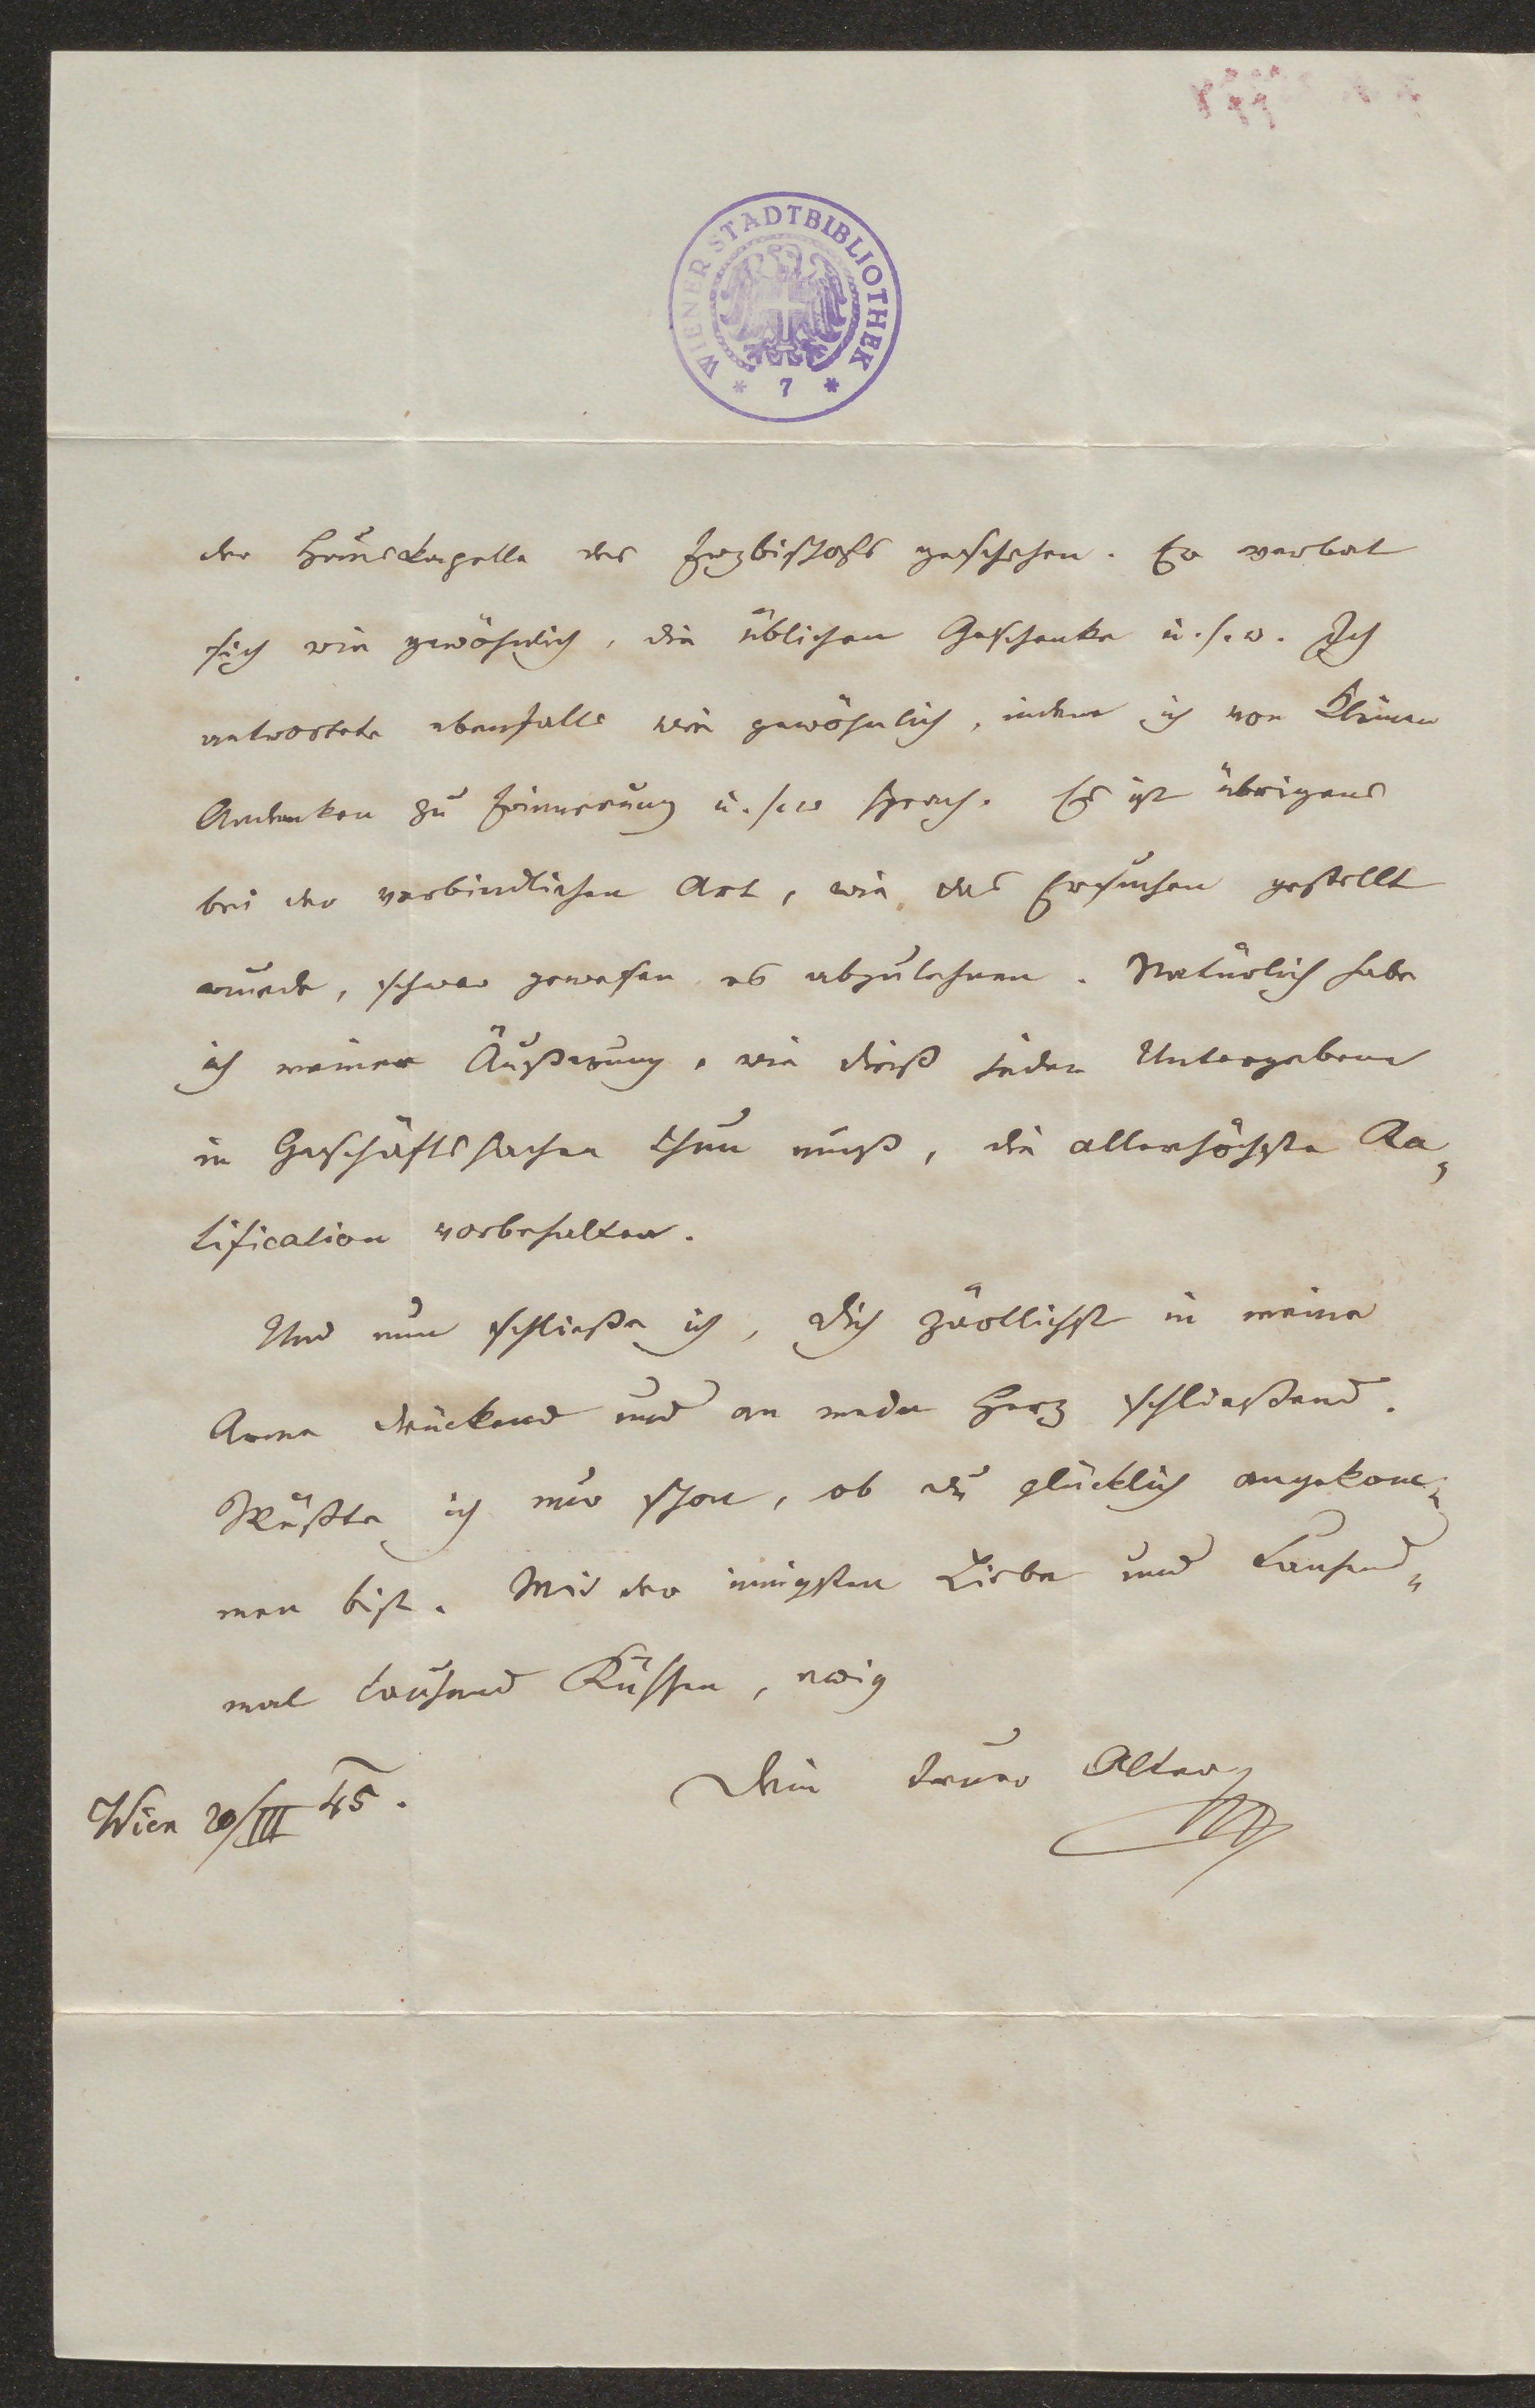 WIENER STADTBIBLIOTHEK
* 7 *
der Hauskapelle des Erzbischofs geschehen. Er verbat
sich wie gewöhnlich, die üblichen Geschenke u.s.w. Ich
antwortete ebenfalls wie gewöhnlich, indem ich von kleinen
Andenken zu Erinnerung u.s.w sprach. Es ist übrigens
bei der verbindlichen Art, wie das Ersuchen gestellt
wurde, schwer gewesen es abzulehnen. Natürlich habe
ich meiner Äußerung, wie dieß jeder Untergebene
in Geschäftssachen thun muß, die allerhöchste Ra„
tification vorbehalten.
Und nun schließe ich, dich zärtlichst in meine
Arme drückend und an mein Herz schließend.
Wüßte ich nur schon, ob du glücklich angekom„
men bist. Mit der innigsten Liebe und tausend„
mal tausend Küssen, ewig
Dein treuer Alter
Wien 20/III 45.